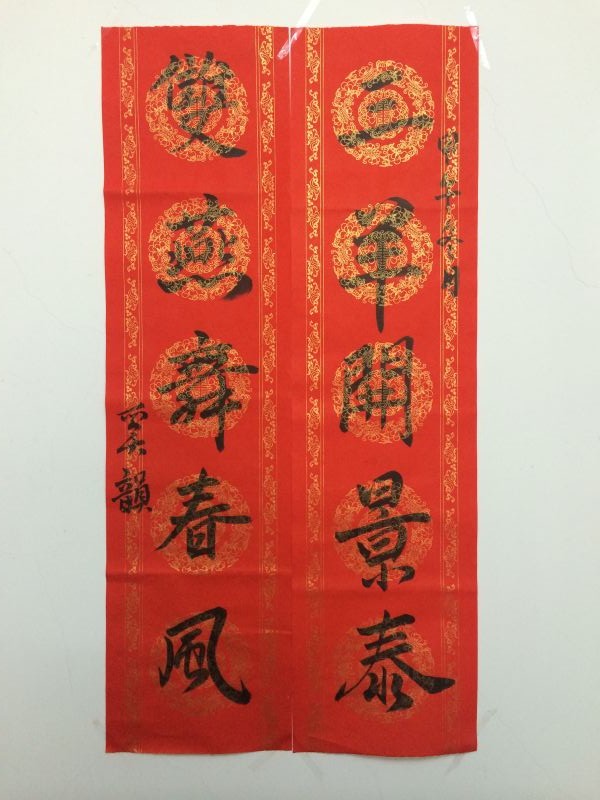 三羊開景泰
雙燕舞春風
韻